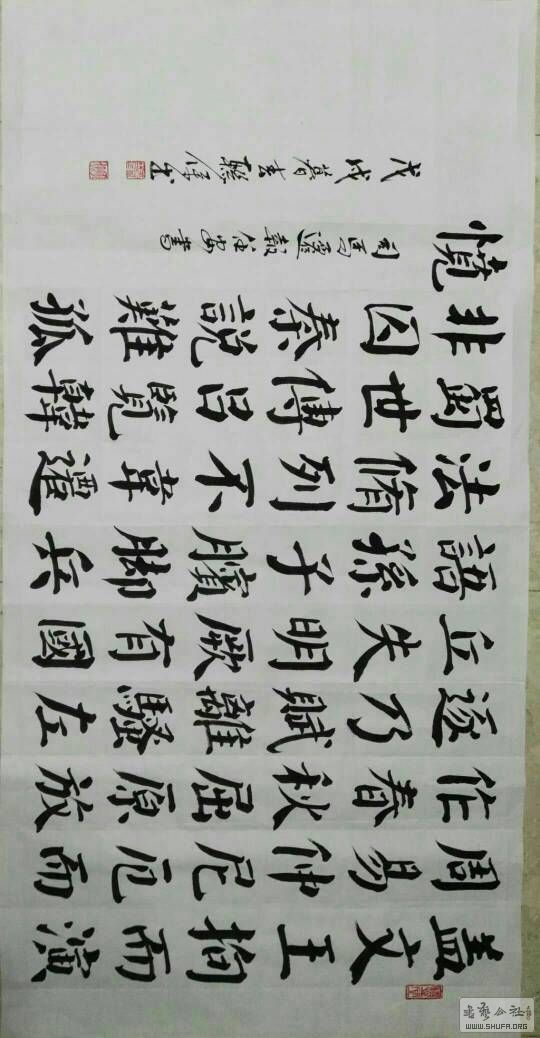 盖文王拘而演
周易仲尼厄而
作春秋屈原放
逐乃賦離騷左
丘失明厥有國
語孫子臏脚兵
法脩列不韋遷
蜀世傳呂覽韓
非囚秦說難孤
憤
司馬遷報任安書
戊戌暮春
書
WWW.SHUFA.ORG